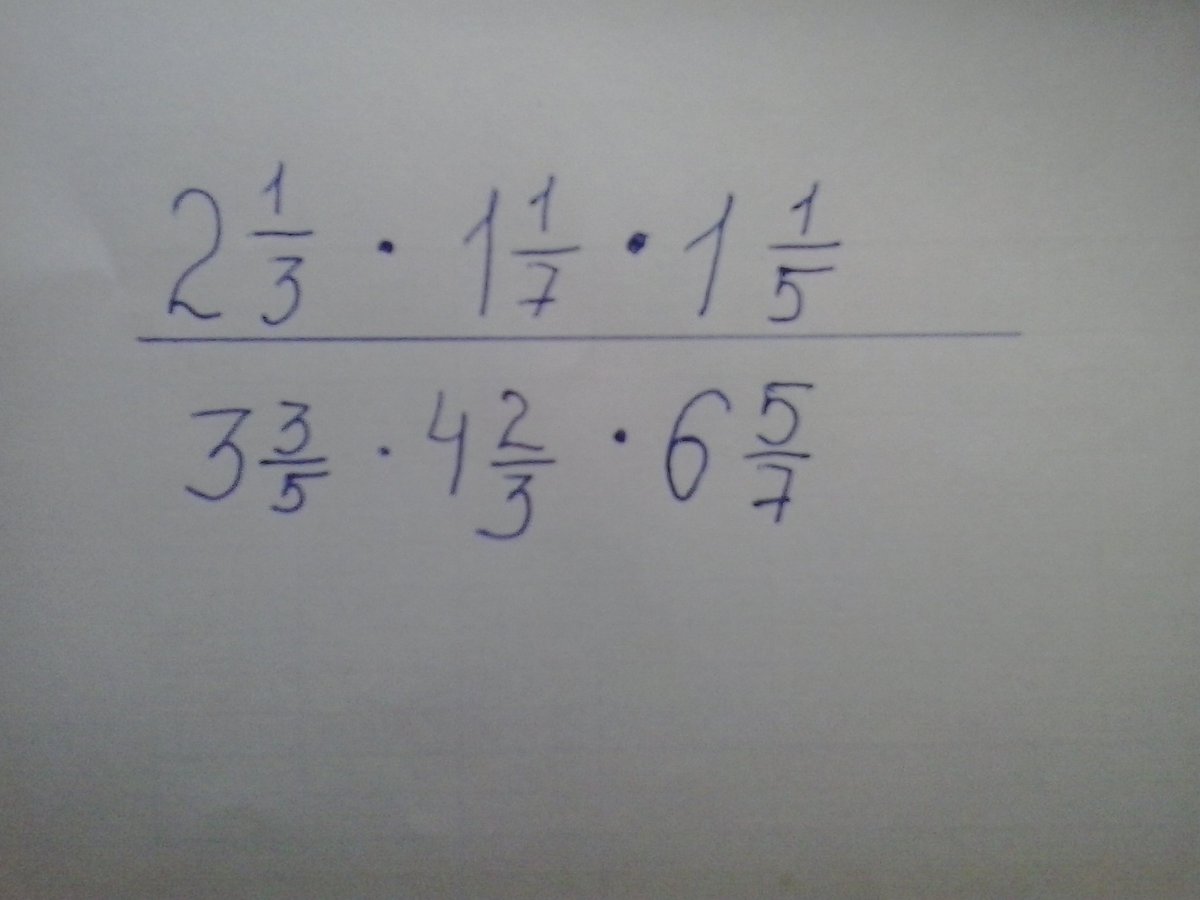 2 1/3 · 1 1/7 · 1 1/5
3 3/5 · 4 2/3 · 6 5/7